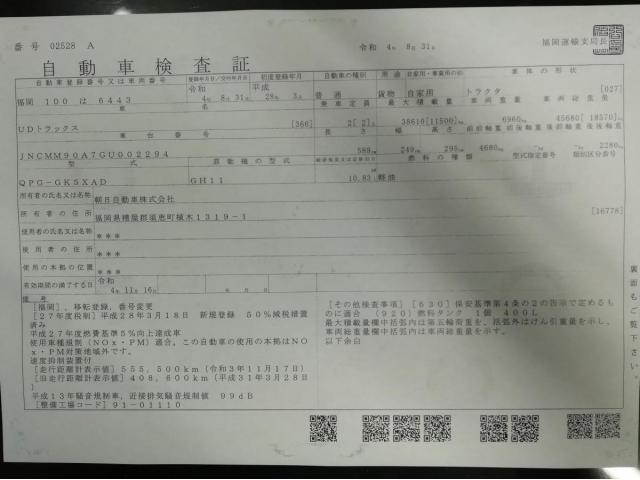 番号 02528 A
令和 4年 8月 31日
福岡運輸支局長
自動車検査証
自動車登録番号又は車両番号
登録年月日/交付年月日
初度登録年月
自動車の種別
用途
自家用・事業用の別
車体の形状
福岡 100 は 6443
令和 4年 8月 31日
平成 28年 3月
普通
貨物
自家用
トラクタ
[027]
車名
乗車定員
最大積載量
車両重量
車両総重量
UDトラックス
[366]
2[ 2]人
38610[11500]kg
6960kg
45680[ 18570]kg
車台番号
長さ
幅
高さ
前前軸重
前後軸重
後前軸重
後後軸重
JNCMM90A7GU002294
589cm
249cm
295cm
4680kg
-kg
-kg
2280kg
型式
原動機の型式
総排気量又は定格出力
燃料の種類
型式指定番号
類別区分番号
QPG-GK5XAD
GH11
10.83
軽油
所有者の氏名又は名称
朝日自動車株式会社
所有者の住所
福岡県糟屋郡須恵町植木1319-1
[16778]
使用者の氏名又は名称
***
使用者の住所
***
使用の本拠の位置
***
有効期間の満了する日
令和 4年 11月 16日
備考
[福岡], 移転登録, 番号変更
[27年度税制] 平成28年3月18日 新規登録 50%減税措置
済み
平成27年度燃費基準5%向上達成車
使用車種規制(NOx・PM)適合, この自動車の使用の本拠はNO
x・PM対策地域外です。
速度抑制装置付
[走行距離計表示値] 555,500km(令和3年11月17日)
[旧走行距離計表示値] 408,600km(平成31年3月28日
)
平成13年騒音規制車, 近接排気騒音規制値 99dB
[整備工場コード] 91-01110
[その他検査事項] [630] 保安基準第4条の2の告示で定めるも
のに適合 (920) 燃料タンク 1個 400L
最大積載量欄中括弧内は第五輪荷重を, 括弧外はけん引重量を示し,
車両総重量欄中括弧内は車両総重量を示す。
以下余白
裏面もご覧下さい。